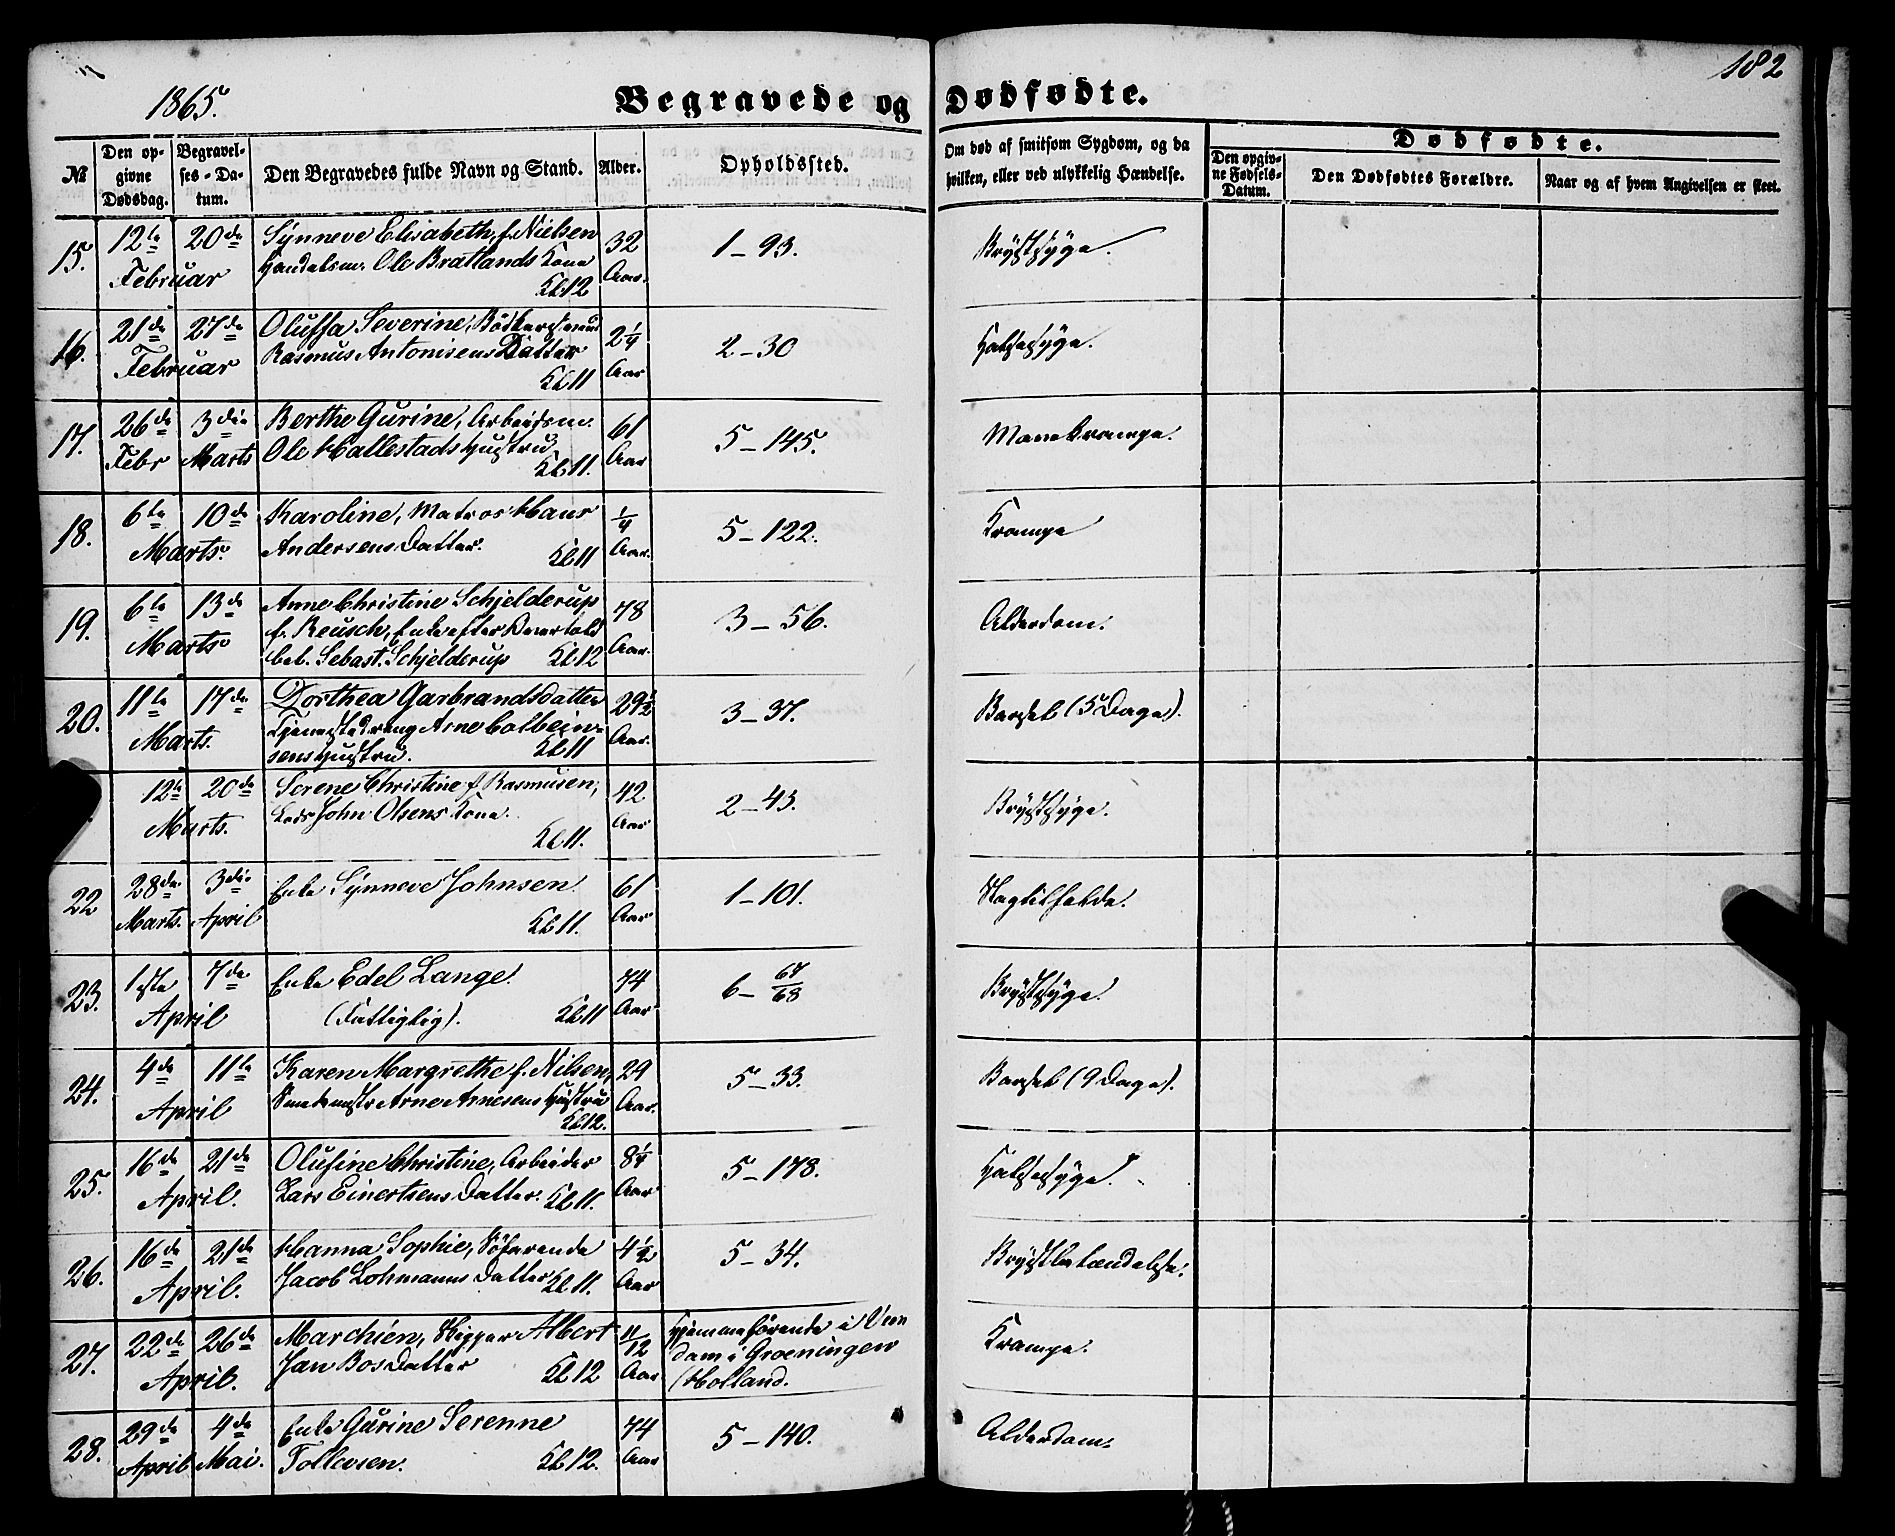 182
1865.
Begravede og Dødfødte.
№
Den opgivne Dødsdag.
Begravelses-Datum.
Den Begravedes fulde Navn og Stand.
Alder.
Opholdssted.
Om død af smitsom Sygdom, og da hvilken, eller ved ulykkelig Hændelse.
Dødfødte.
Den opgivne Fødsels-Datum.
Den Dødfødtes Forældre.
Naar og af hvem Angivelsen er skeet.
15. 12te 20de Synneve Elisabeth, f. Nielsen 32 1-93. Brystsyge.
Februar Handelsm. Ole Bratlands Kone Aar.
Kl. 12
16. 21de 27de Oluffa Severine, Bødkersvend 2¼ 2-30 Halssyge.
Februar Rasmus Antonisens Datter Aar
Kl 11
17. 26de 3die Berthe Gurine, Arbeidsm. 61 5-145. Mavekrampe.
Febr Marts Ole Hallestads Hustru Aar
Kl 11.
18. 6te 10de Karoline, Matros Hans ¼ 5-122. Krampe
Marts. Andersens Datter. Kl 11 Aar.
19. 6te 13de Anne Christine Schjelderup 78 3-56. Alderdom.
Marts f. Reusch, Enke efter Overtold Aar.
bet. Sebast. Schjelderup Kl 12
20. 11te 17de Dorthea Garbrandsdatter 29½ 3-37. Barsel (5 Dage).
Marts. Tjenestedreng Arne Colbein- Aar.
sens Hustru. Kl 11
12te 20de Serene Christine f. Rasmusen, 42 2-43. Brystsyge.
Marts. Lods John Olsens Kone. Aar
Kl 11.
22 28de 3die Enke Synneve Johnsen 61 1-101. Slagtilfælde.
Marts. April Kl 11. Aar
23. 1ste 7de Enke Edel Lange. 74 6-67/68 Brystsyge.
April (Fattiglig). Kl 11 Aar
24. 4de 11te Karen Margrethe f. Nilsen, 29 5-33. Barsel (9 Dage).
April Arne Arnesens Hustru Aar.
Kl 12.
25. 16de 21de Olufine Christine, Arbeider 8¼ 5-178. Halssyge.
April. Lars Einertsens Datter. Kl 11. Aar
26. 16de 21de Hanna Sophie, Søfarende 4½ 5-34. Brystbetændelse.
April. Jacob Lohmanns Datter Kl 11. Aar
27. 22de 26de Marchien, Skipper Albert 11/12 Hjemmehørende i Veen Krampe.
April. Jan Bos Datter Kl 12 Aar dam i Groeningen
(Holland.
28. 29de 4de Enke Gurine Serenne 74 5-140. Alderdom.
April Mai. Tollevsen. Kl 12. Aar